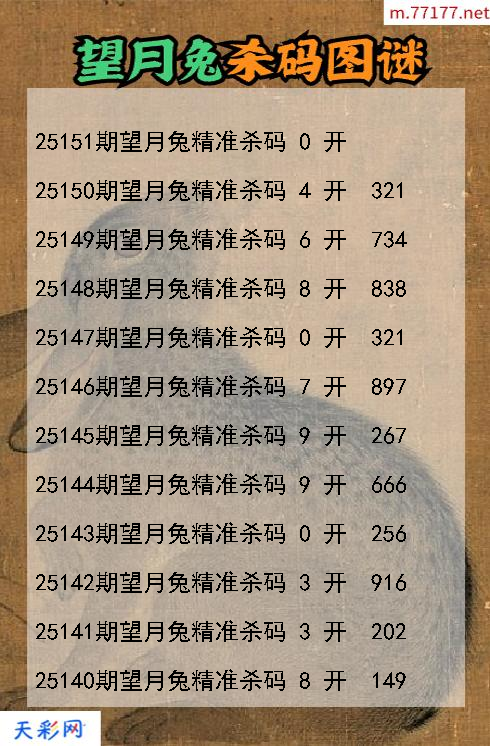 m.77177.net
望月兔杀码图谜
25151期望月兔精准杀码 0 开
25150期望月兔精准杀码 4 开 321
25149期望月兔精准杀码 6 开 734
25148期望月兔精准杀码 8 开 838
25147期望月兔精准杀码 0 开 321
25146期望月兔精准杀码 7 开 897
25145期望月兔精准杀码 9 开 267
25144期望月兔精准杀码 9 开 666
25143期望月兔精准杀码 0 开 256
25142期望月兔精准杀码 3 开 916
25141期望月兔精准杀码 3 开 202
25140期望月兔精准杀码 8 开 149
天彩网